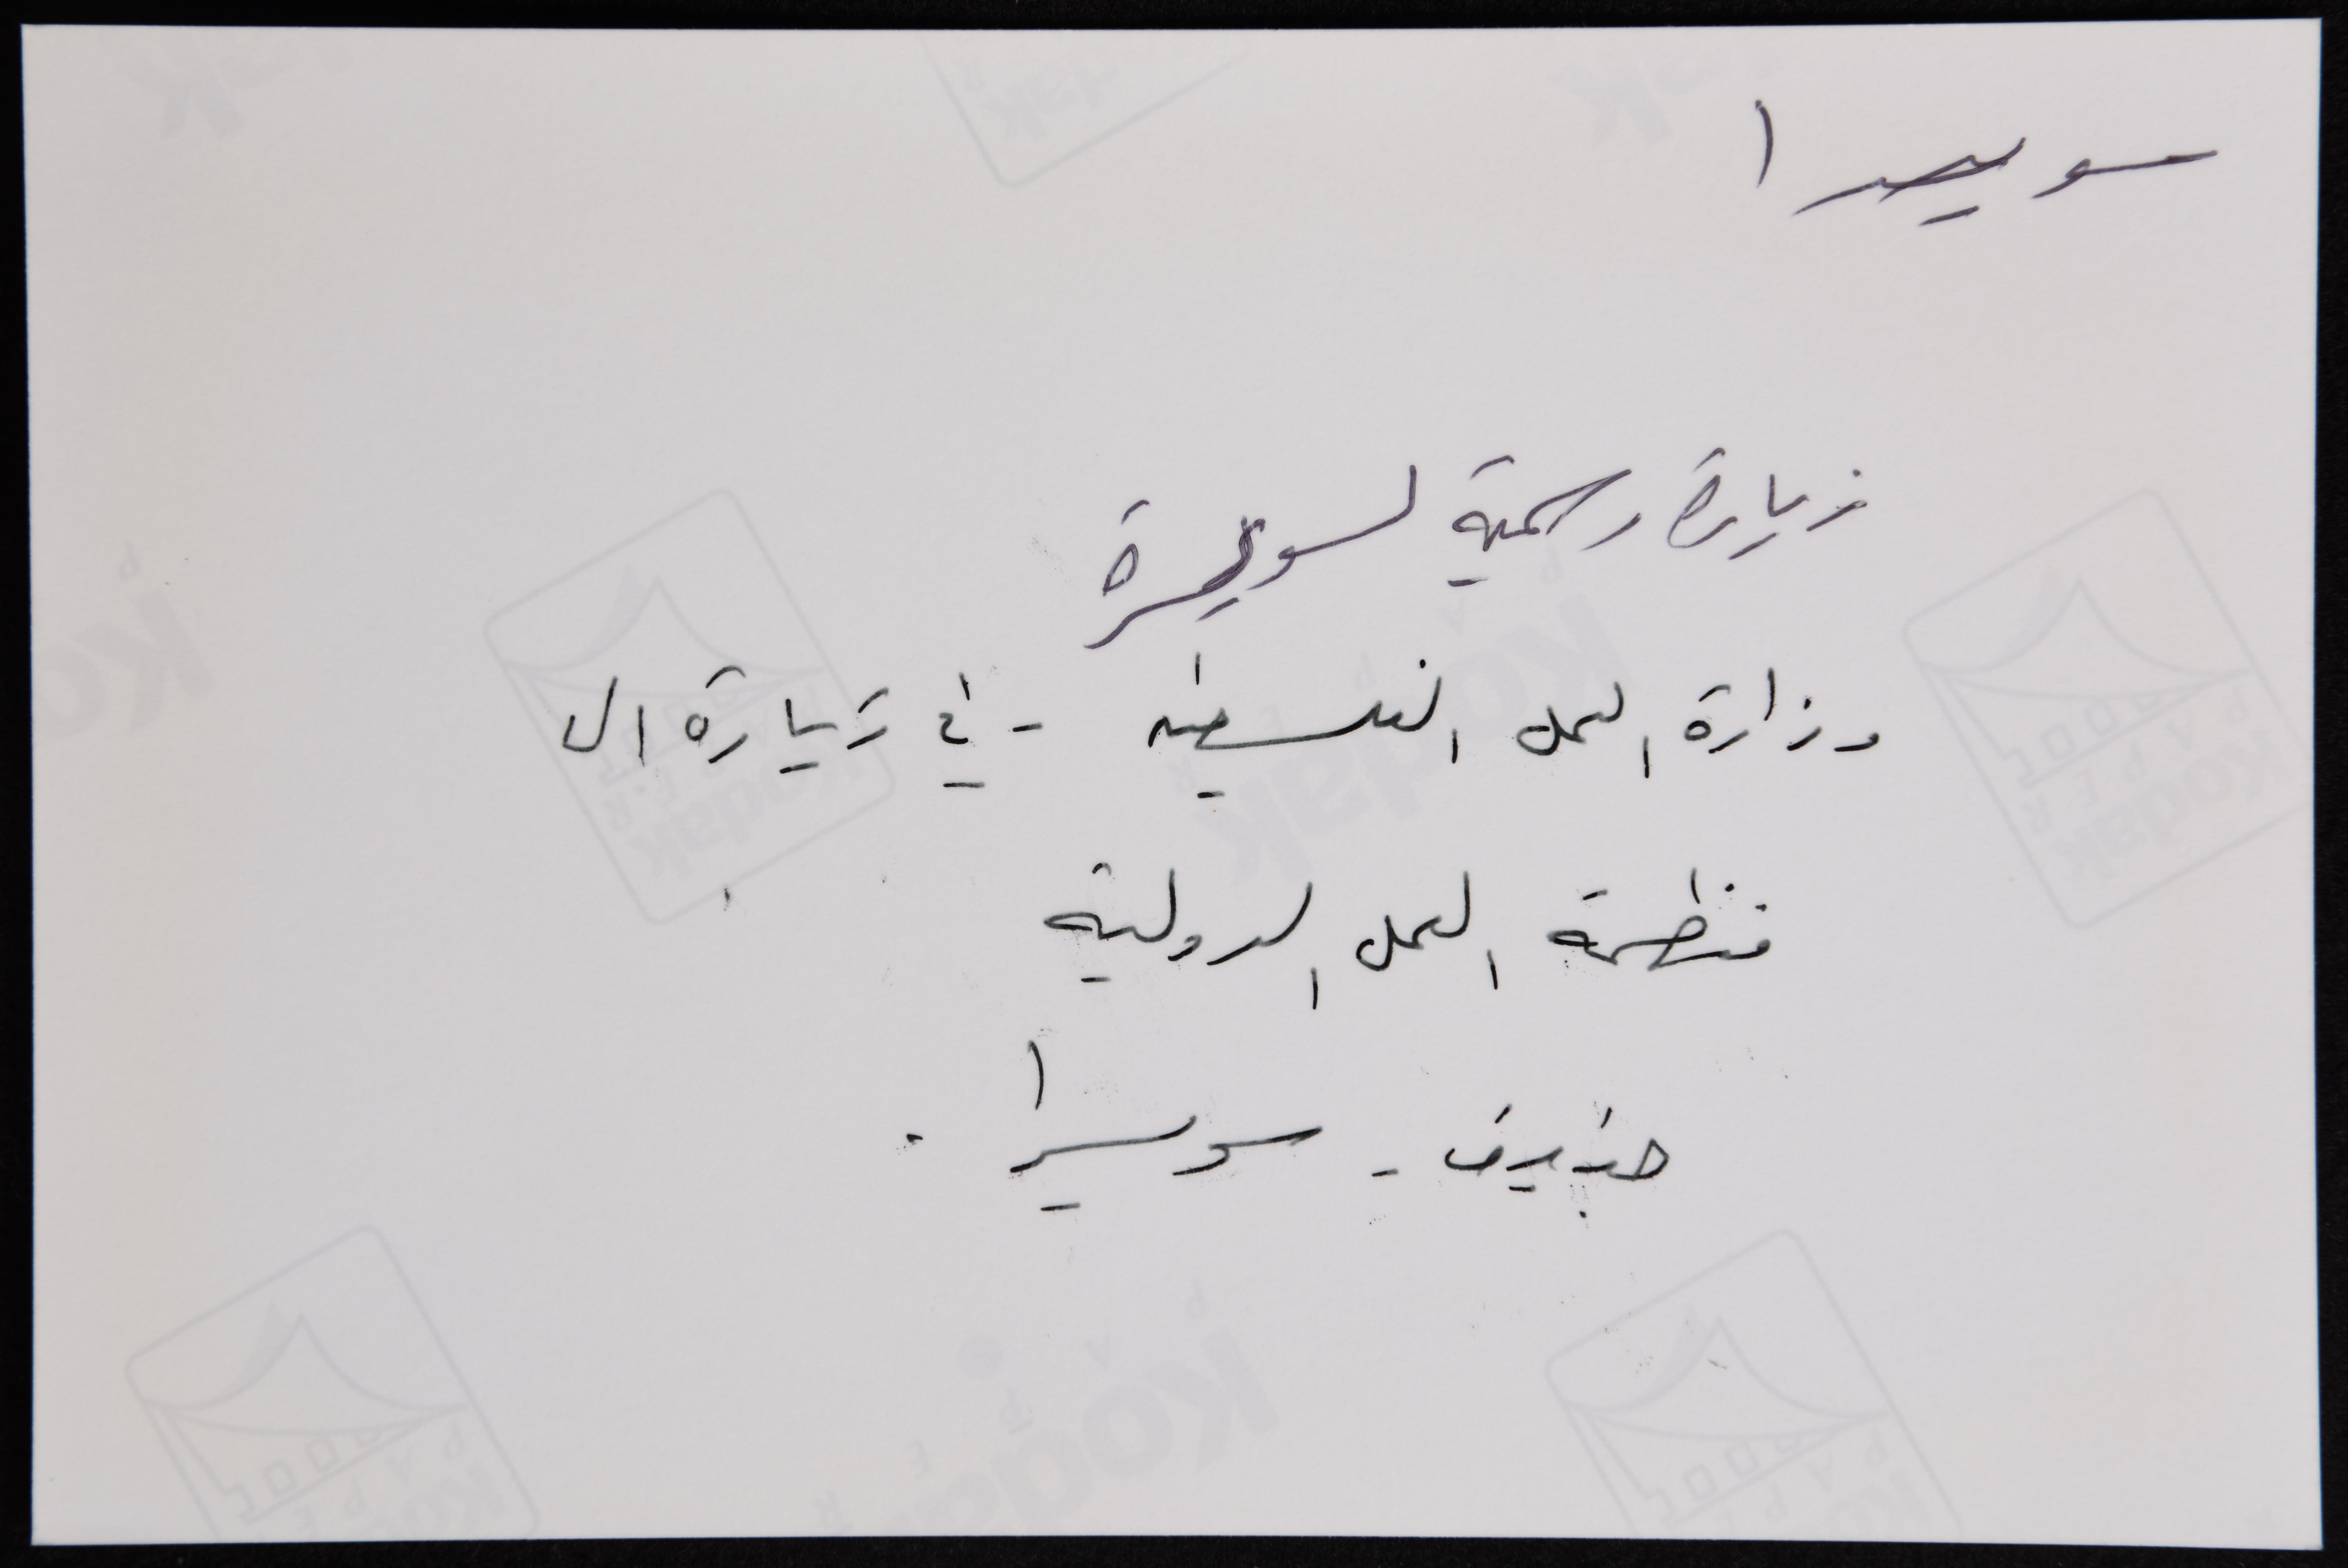 سويصرا
زيارة رسمية لسويصرة
وزارة العمل الفلسطينيه - في زيارة ال
منظمة العمل الدولية
جنيف - سويسرا .
Kodak
Kodak
Kodak